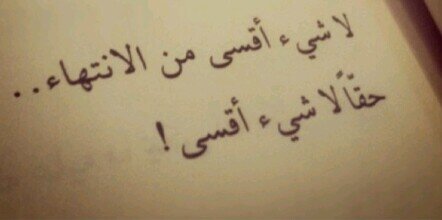 لا شيء أقسى من الانتهاء..
حقّاً لا شيء أقسى !